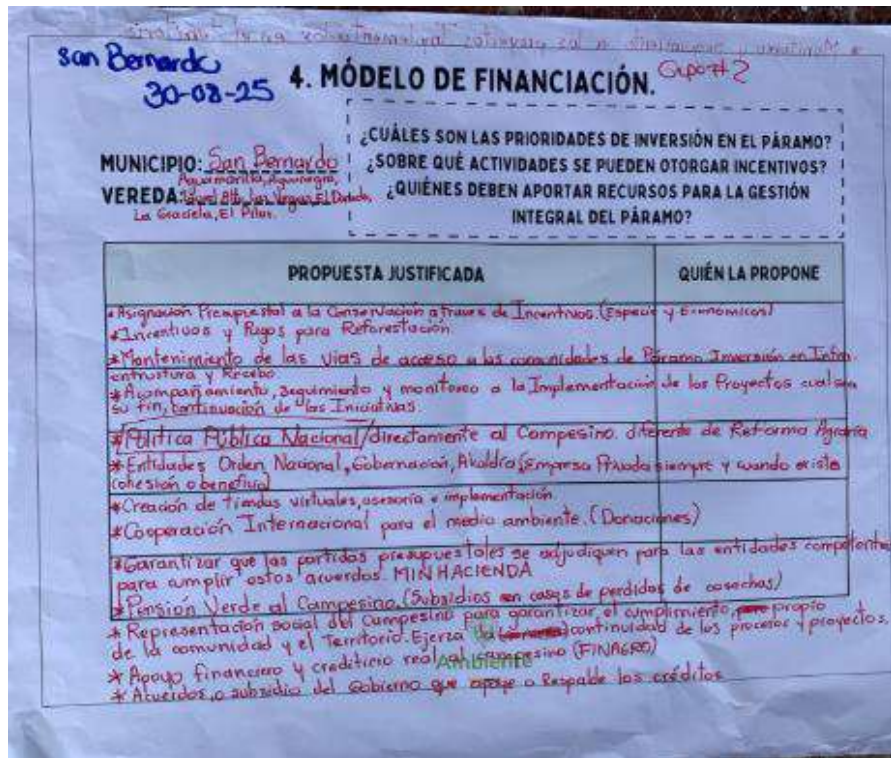 * Monitoreo y seguimiento a los proyectos Implementados en el territorio
San Bernardo
30-08-25
4. MÓDELO DE FINANCIACIÓN.
Grupo #2
¿CUÁLES SON LAS PRIORIDADES DE INVERSIÓN EN EL PÁRAMO?
¿SOBRE QUÉ ACTIVIDADES SE PUEDEN OTORGAR INCENTIVOS?
¿QUIÉNES DEBEN APORTAR RECURSOS PARA LA GESTIÓN
INTEGRAL DEL PÁRAMO?
MUNICIPIO: San Bernardo
Aguamarilla, Aguanegra,
VEREDA: Alto, Las Vegas, El Dorado,
La Graciela, El Pilar.
PROPUESTA JUSTIFICADA
QUIÉN LA PROPONE
*Asignación Presupuestal a la Conservación a traves de Incentivos. (Especie y Economicos)
*Incentivos y Pagos para Reforestación.
*Mantenimiento de las vias de acceso a las comunidades de Páramo Inversión en Infra-
entrustura y Recebo
*Acompañamiento, seguimiento y monitoreo a la Implementación de los Proyectos cual sea
su fin, continuación de las Iniciativas.
*Política Pública Nacional/directamente al Campesino. diferente de Reforma Agraria
*Entidades Orden Nacional, Gobernación, Alcaldía (Empresa Privada siempre y cuando exista
cohesión o beneficio)
*Creación de tiendas virtuales, asesoría e implementación.
*Cooperación Internacional para el medio ambiente. (Donaciones)
*Garantizar que las partidas presupuestales se adjudiquen para las entidades competentes
para cumplir estos acuerdos. MINHACIENDA
*Pensión Verde al Campesino. (Subsidios en casos de perdidas de cosechas)
* Representación social del Campesino para garantizar el cumplimiento, propio
de la comunidad y el Territorio. Ejerza la continuidad de los procesos y proyectos.
* Apoyo financiero y crediticio real al campesino (FINAGRO)
Ambiente
* Acuerdos, o subsidio del Gobierno que apoye o Respalde los créditos